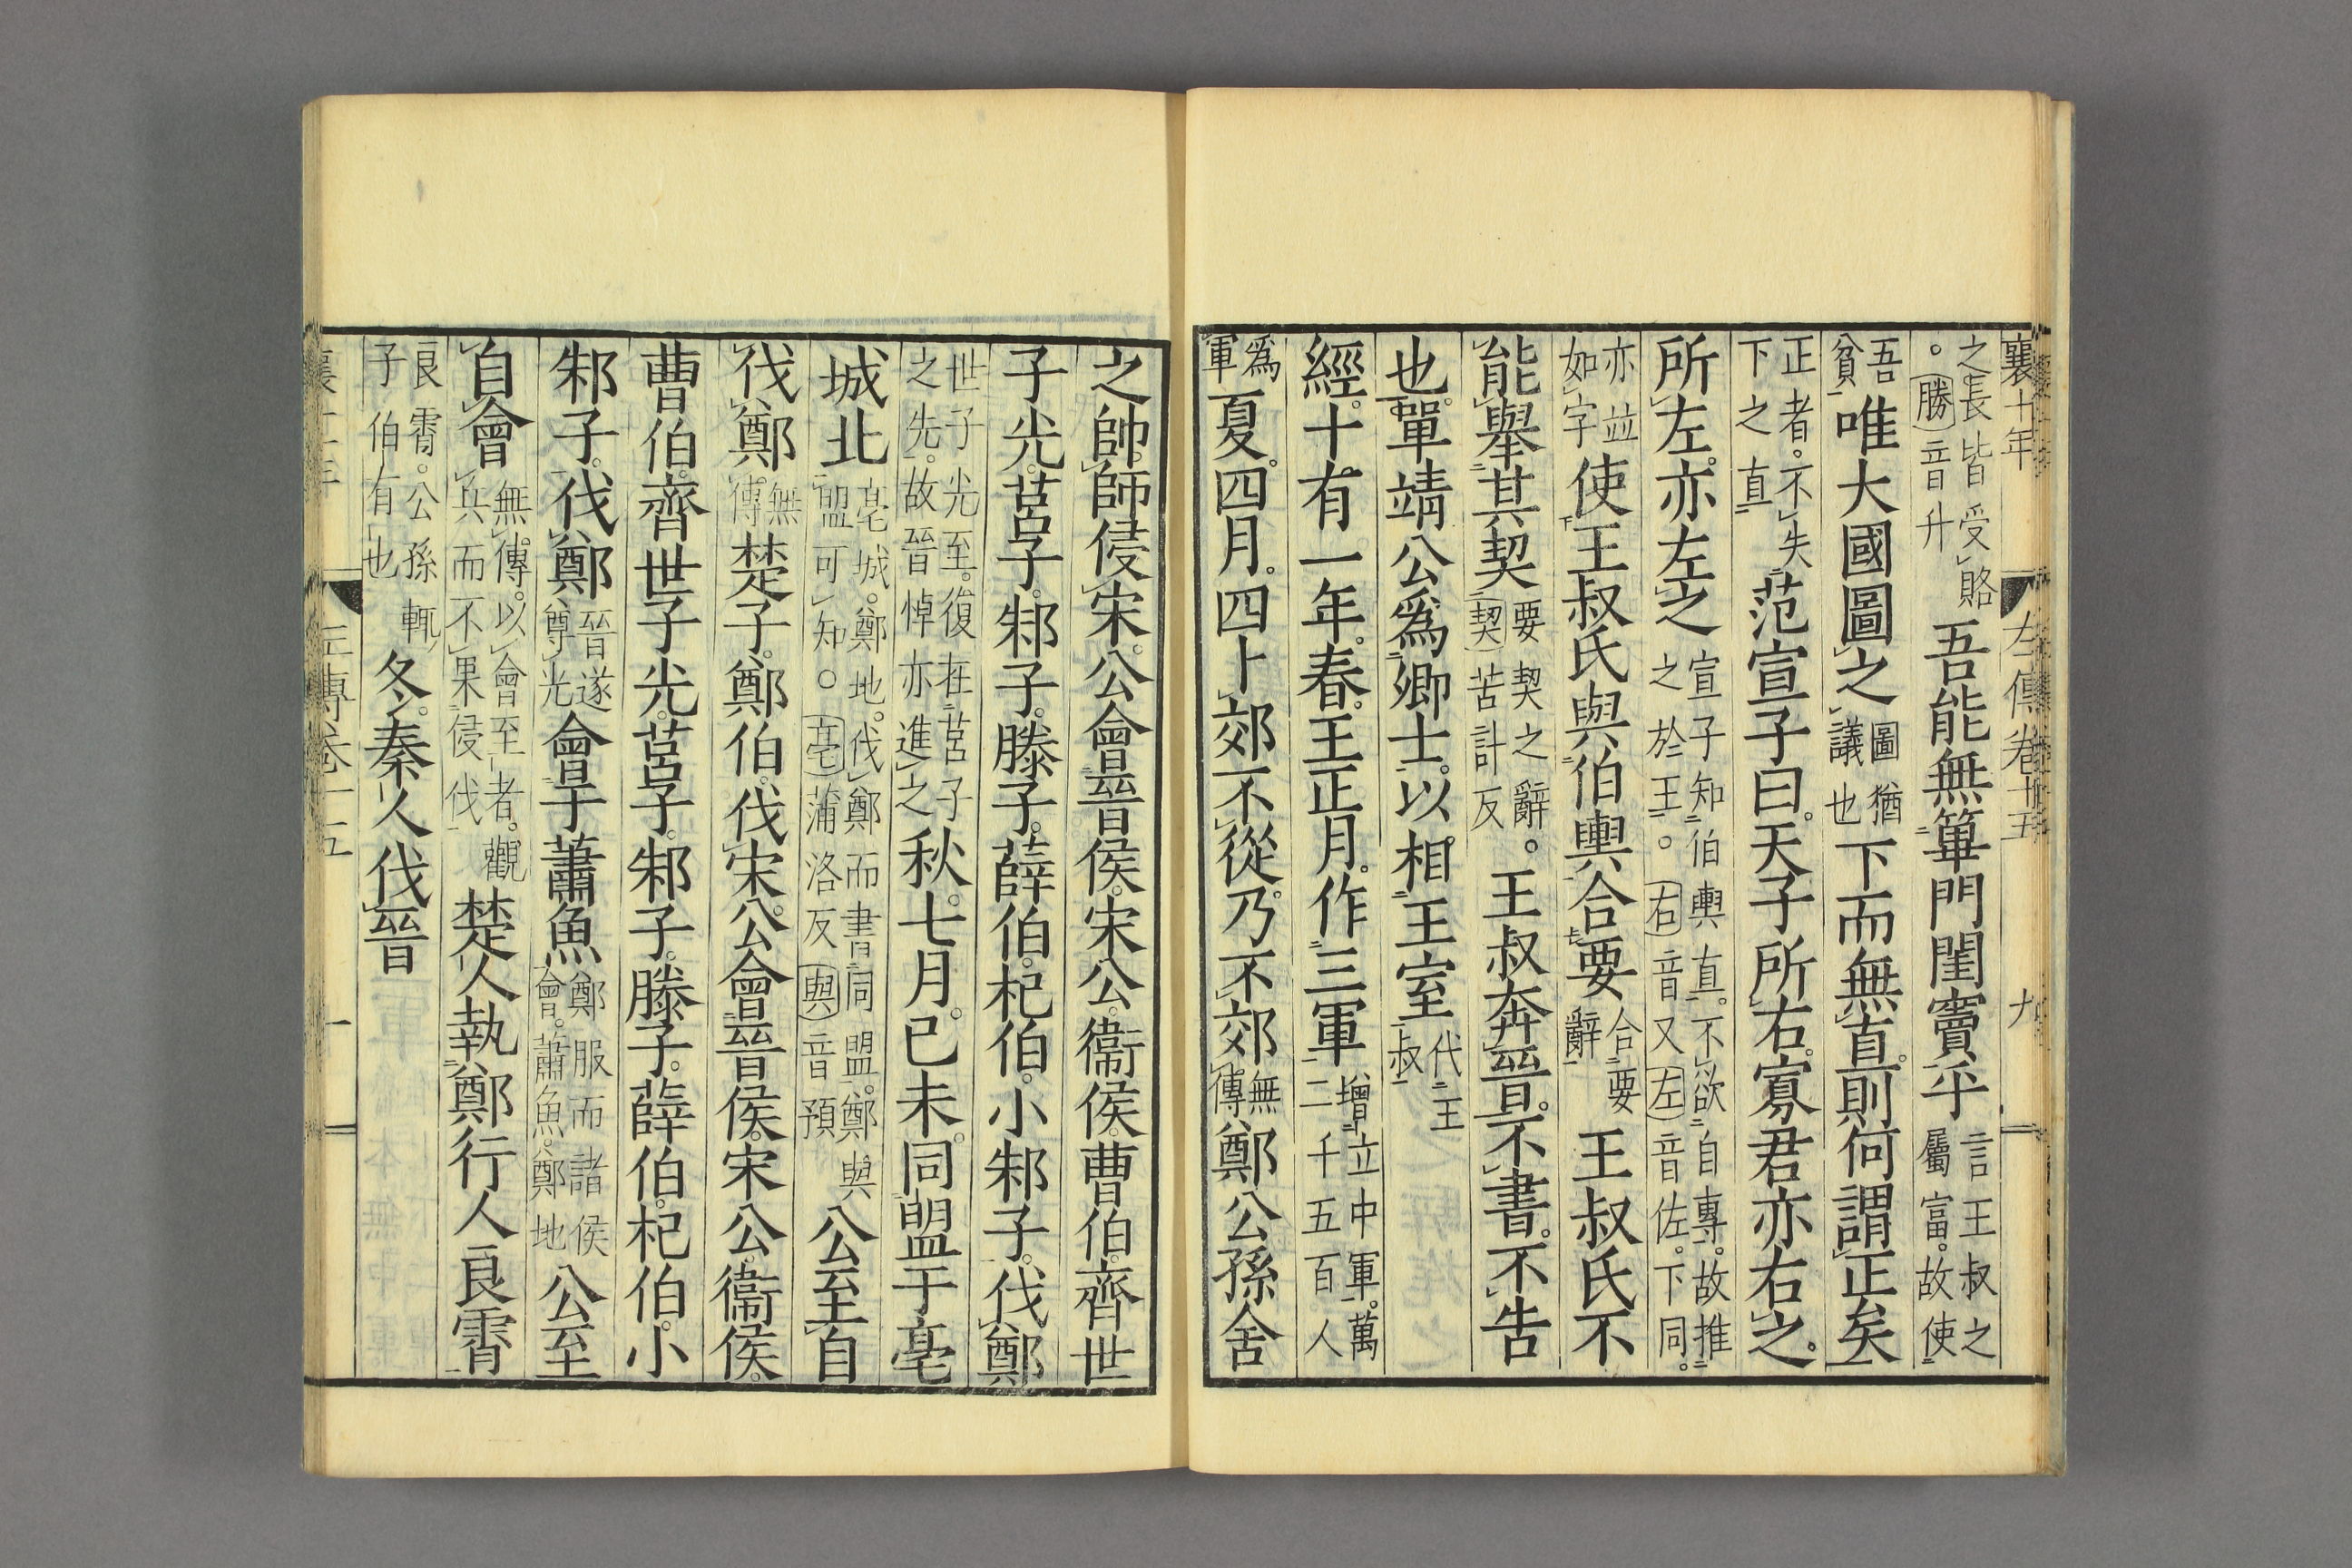 襄十年 左傳卷十五 九
之長皆受賂。勝音升吾能無篳門閨竇乎言王叔之屬富。故使
吾貧唯大國圖之圖猶議也下而無直。則何謂正矣
正者。不失下之直范宣子曰。天子所右。寡君亦右之。
所左。亦左之宣子知伯輿直。不欲自專。故推之於王。。右音又左音佐。下同。
亦並如字使王叔氏與伯輿合要合要辭王叔氏不
能舉其契要契之辭。契苦計反王叔奔晉。不書。不告
也。單靖公爲卿士。以相王室代王叔
經。十有一年。春。王正月。作三軍增立中軍。萬二千五百人
爲軍夏。四月。四卜郊不從。乃不郊無傳鄭公孫舍
之帥師侵宋。公會晉侯。宋公。衞侯。曹伯。齊世
子光。莒子。邾子。滕子。薛伯。杞伯。小邾子。伐鄭
世子光至。復在莒子之先。故晉悼亦進之秋。七月。己未。同盟于亳
城北亳城。鄭地。伐鄭而書同盟。鄭與盟可知。。亳蒲洛反與音預公至自
伐鄭無傳楚子。鄭伯。伐宋。公會晉侯。宋公。衞侯。
曹伯。齊世子光。莒子。邾子。滕子。薛伯。杞伯。小
邾子。伐鄭晉遂尊光會于蕭魚鄭服而諸侯會。蕭魚。鄭地公至
自會無傳。以會至者。觀兵而不果侵伐楚人執鄭行人良霄
良霄。公孫輒子伯有也冬。秦人伐晉
襄十一年 左傳卷十五 十